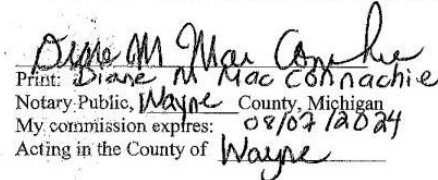 Diane M Mac Connachie
Print: Diane M Mac Connachie
Notary Public, Wayne County, Michigan
My commission expires: 08/07/2024
Acting in the County of Wayne